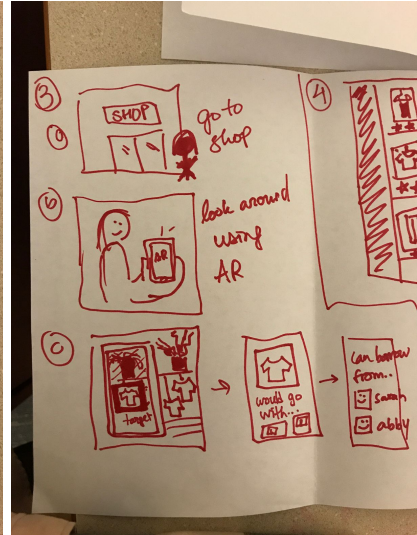 3
a
SHOP
go to
shop
b
AR
look around
using
AR
c
target
would go
with...
can borrow
from..
sarah
abby
4